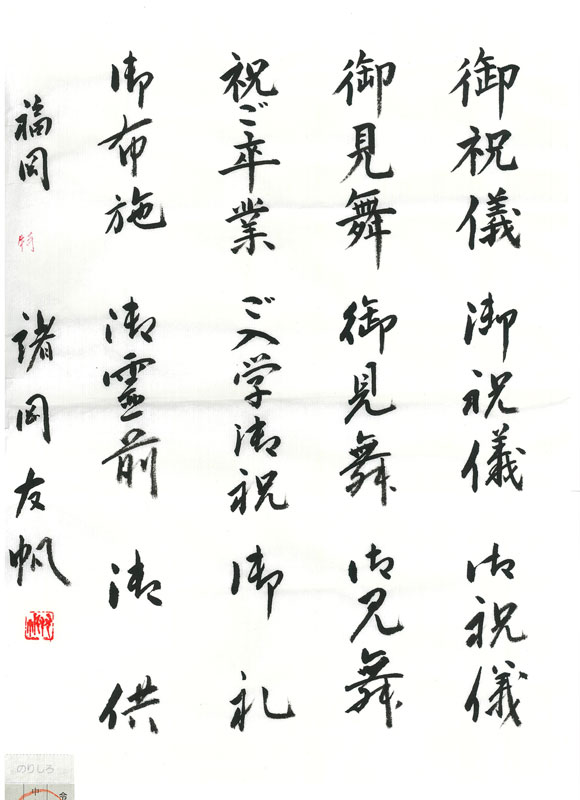 御祝儀 御祝儀 御祝儀
御見舞 御見舞 御見舞
祝ご卒業 ご入学御祝 御礼
御布施 御霊前 御供
福岡 特 諸岡友帆
のりしろ
中